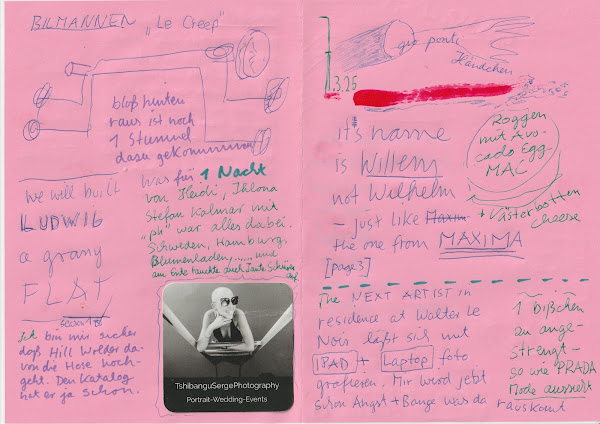 BILMANNEN „Le Creep"
bloß hinten
raus ist noch
1 Stummel
dazu gekommen
we will built
LUDWIG
a granny
FLAT
season 18
Ich bin mir sicher
daß Hill Wolder da-
von die Hose hoch-
geht. Den Katalog
hat er ja schon.
Was für 1 Nacht
von Heidi, Ihlona
Stefan Kalmar mit
"ph" war alles dabei.
Schweden, Hamburg,
Blumenladen,...... und
am Ende tauchte auch Tante Schürze
auf
TshibanguSergePhotography
Portrait-Wedding-Events
1.3.25
gio ponti
Händchen
it's name
is Willem
not Wilhelm
– just like Maxim
the one from MAXIMA
[page 3]
Roggen
mit Avo-
cado Egg-
MAC
+ Västerbotten
cheese
The NEXT ARTIST in
residence at Walter Le
Noir läßt sich mit
IPAD + Laptop foto
grafieren. Mir word jetzt
schon Angst + Bange was da rauskomt
1 bißchen
zu ange-
strengt -
so wie PRADA
Mode aussieht